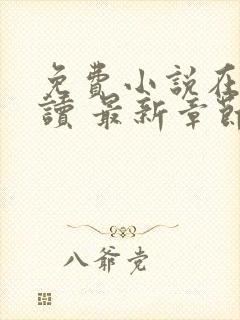 免費小說在
讀 最新章節
八爺党